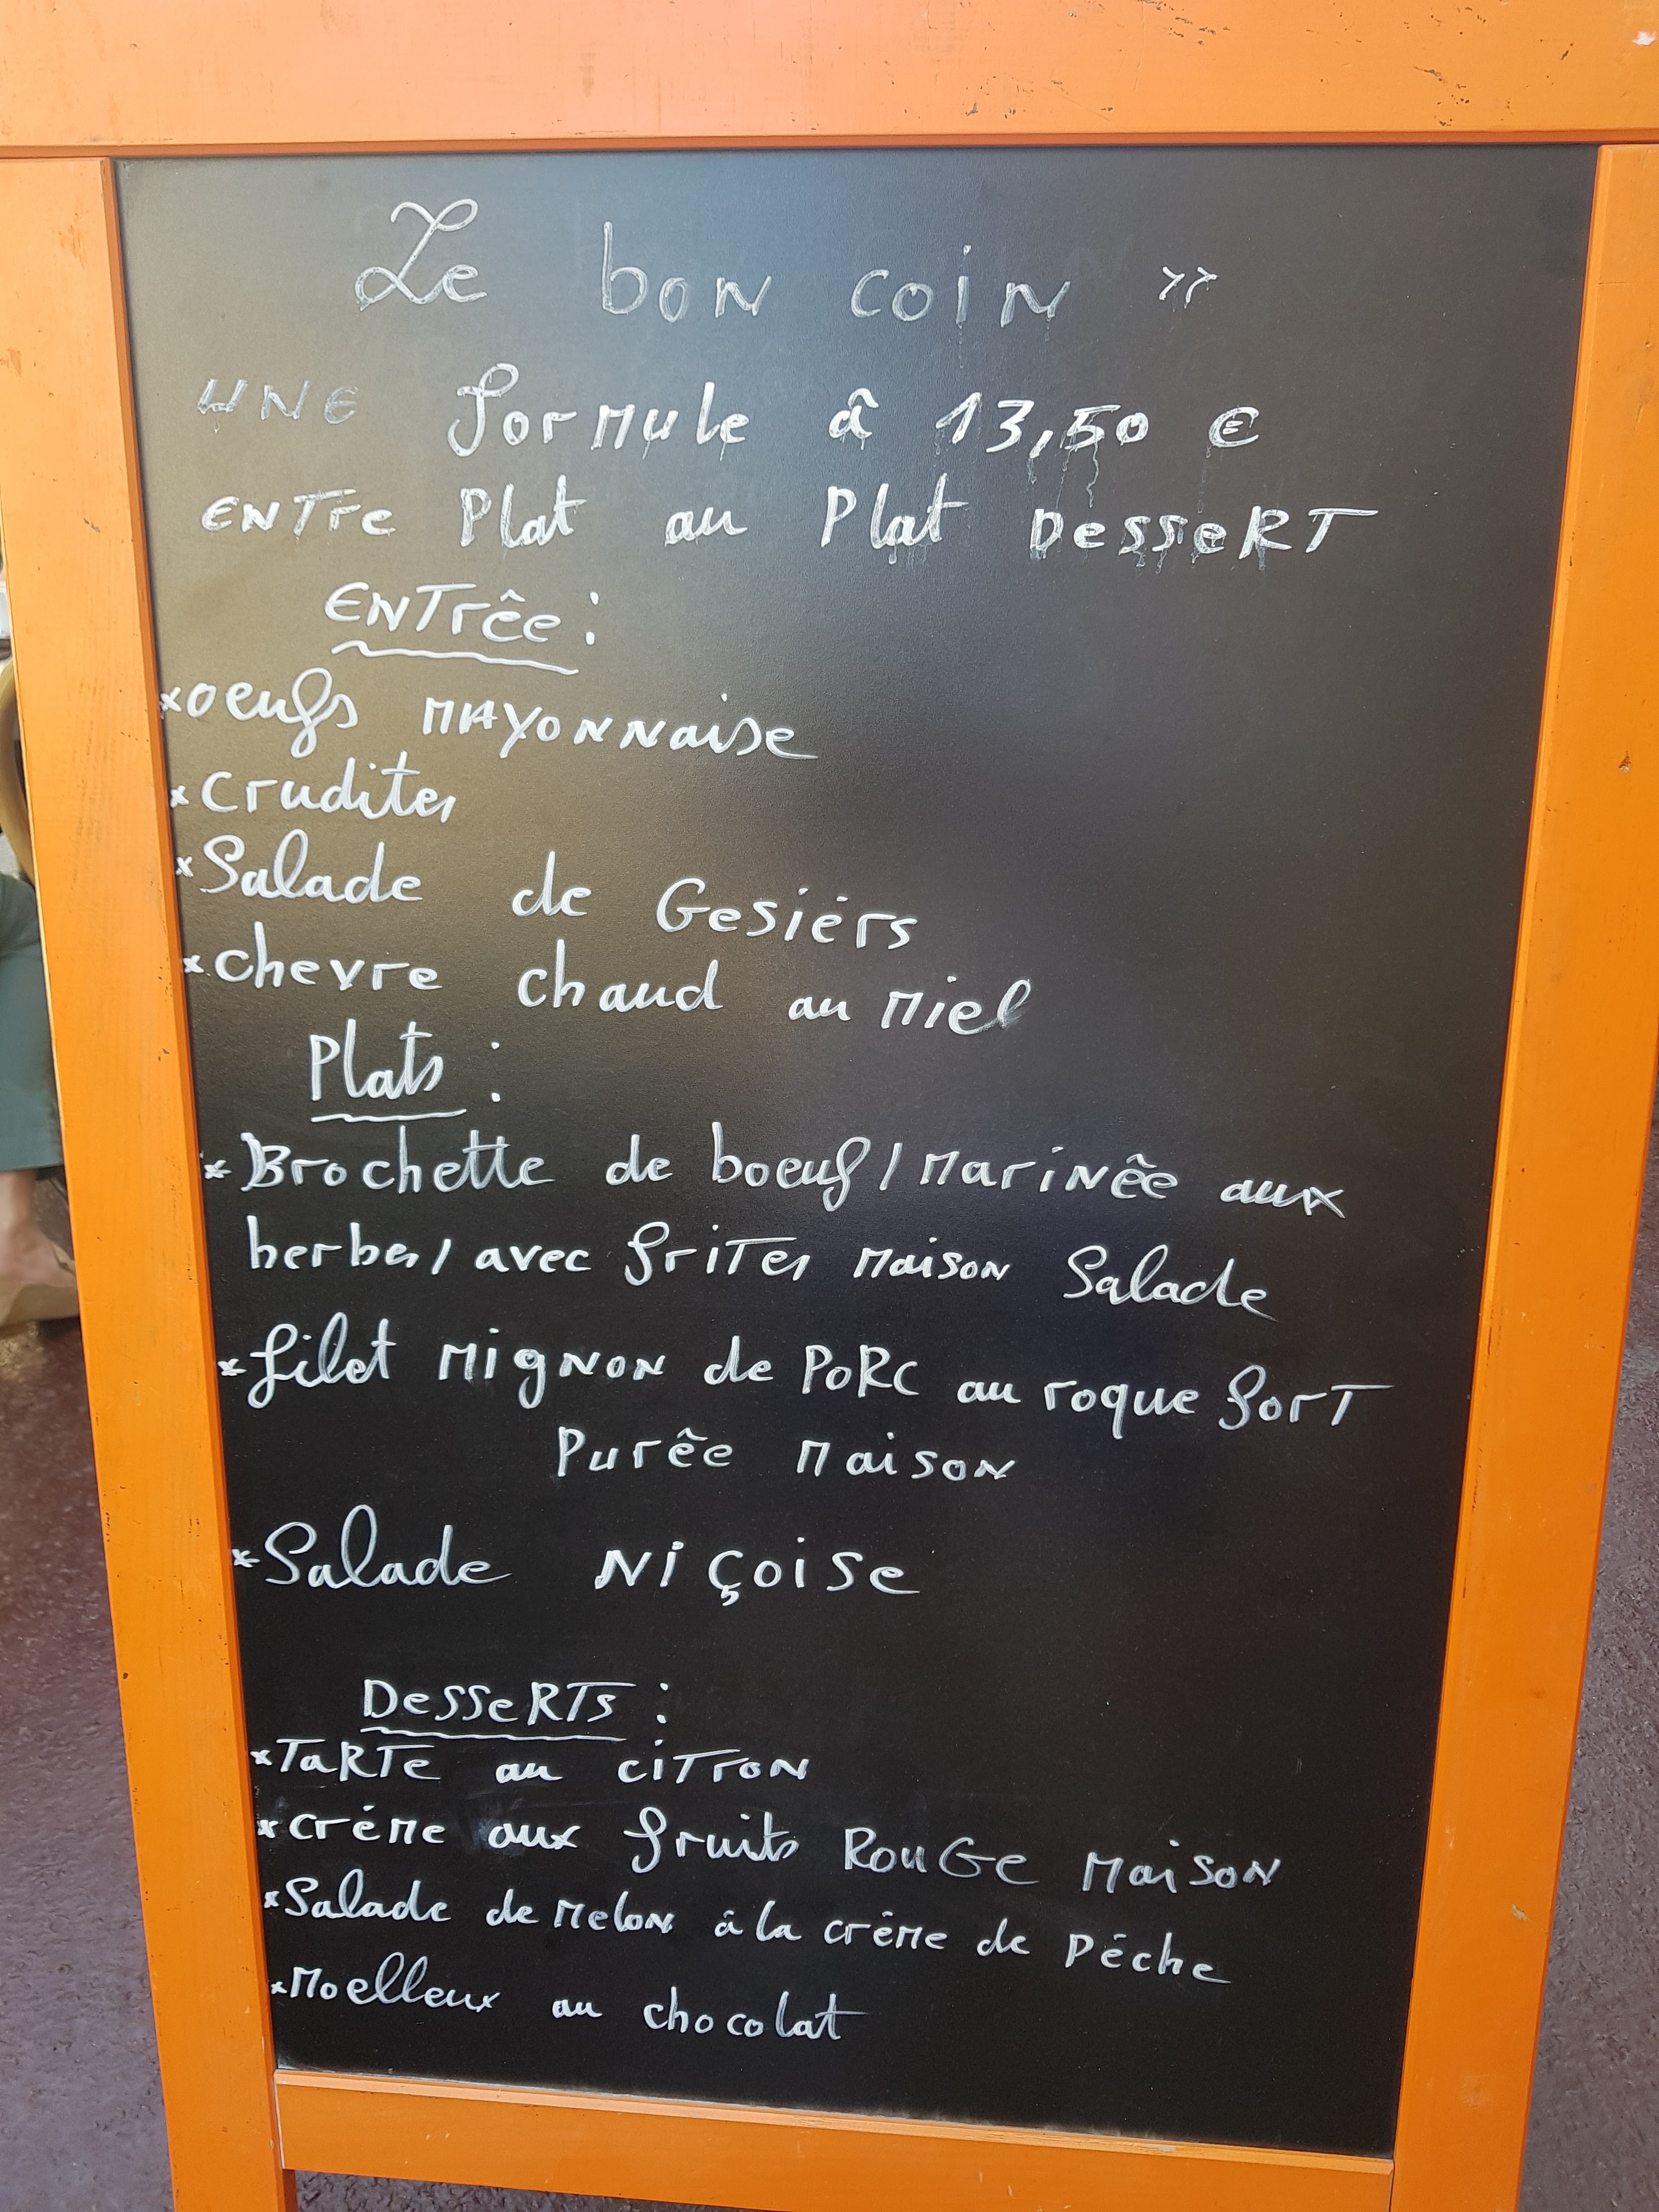 Le bon coin »
UNE formule â 13,50 €
ENTre Plat au Plat DesseRT
ENTrêe :
*oeufs MAYONNaise
*crudites
*Salade de Gesiérs
*chevre chaud au Miel
Plats :
*Brochette de boeuf / MariNêe aux
herbes / avec friTes Maison Salade
*filet MigNoN de PoRc au roque forT
Purêe Maison
*Salade Niçoise
DesseRTs :
*TaRTe au ciTroN
*créme aux fruits RouGe MaisoN
*Salade de MeloN â la crême de Péche
*Moelleux au chocolat